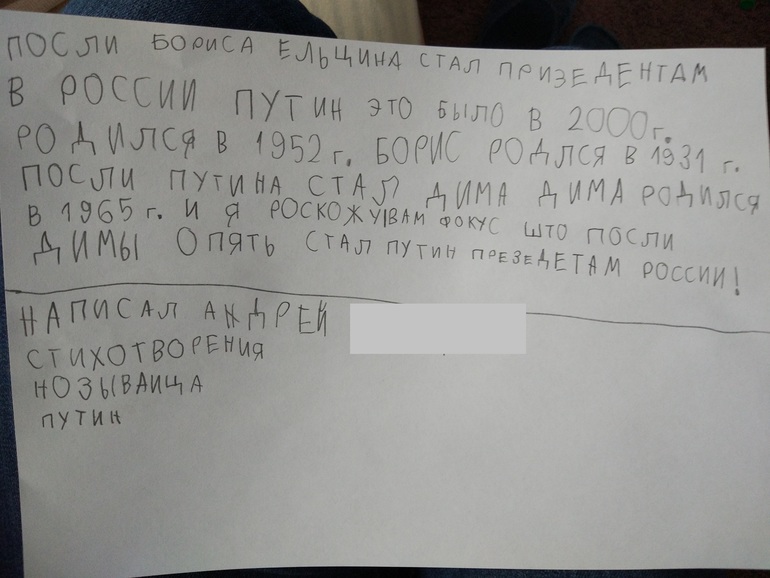 ПОСЛИ БОРИСА ЕЛЬЦИНА СТАЛ ПРИЗЕДЕНТАМ
В РОССИИ ПУТИН ЭТО БЫЛО В 2000г.
РОДИЛСЯ В 1952г. БОРИС РОДЛСЯ В 1931 г.
ПОСЛИ ПУТИНА СТАЛ ДИМА ДИМА РОДИЛСЯ
В 1965г. И Я РОСКОЖУВАМ ФОКУС ШТО ПОСЛИ
ДИМЫ ОПЯТЬ СТАЛ ПУТИН ПРЕЗЕДЕТАМ РОССИИ!
НАПИСАЛ АНДРЕЙ
СТИХОТВОРЕНИЯ
НОЗЫВАИЦА
ПУТИН